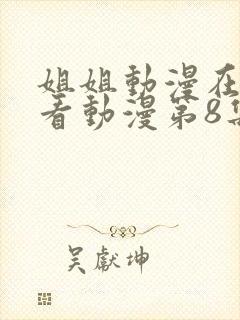 姐姐動漫在
看動漫第8集
吳獻坤